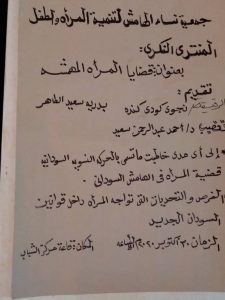 جمعية نساء الهامش لتنمية المرأه والطفل
المنتدى الفكري:
بعنوان: قضايا المرأه المهمشه
تقديم:
نجوى كودى كنده بدريه سعيد الطاهر
د/ احمد عبد الرحمن سعيد
وإلى أى مدى خاطبت ماتسمى بالحركة النسويه السودانيه
قضية المرأه فى الهامش السودانى.
الفرص والتحديات التى تواجه المرأه داخل قوانين
السودان الجديد
الزمان: ٣٠ أكتوبر ٢٠٢٠م الساعه
المكان: قاعة مركز الشباب